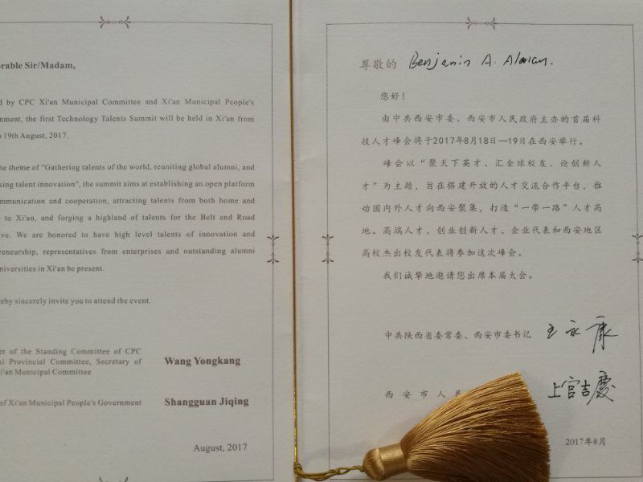 rable Sir/Madam,
d by CPC Xi'an Municipal Committee and Xi'an Municipal People's
nment, the first Technology Talents Summit will be held in Xi'an from
19th August, 2017.
he theme of "Gathering talents of the world, reuniting global alumni, and
sing talent innovation", the summit aims at establishing an open platform
mmunication and cooperation, attracting talents from both home and
to Xi'an, and forging a highland of talents for the Belt and Road
ve. We are honored to have high level talents of innovation and
reneurship, representatives from enterprises and outstanding alumni
niversities in Xi'an be present.
eby sincerely invite you to attend the event.
er of the Standing Committee of CPC
xi Provincial Committee, Secretary of
i'an Municipal Committee
Wang Yongkang
of Xi'an Municipal People's Government
Shangguan Jiqing
August, 2017
尊敬的 Benjamin A.
您好！
由中共西安市委、西安市人民政府主办的首届科
技人才峰会将于2017年8月18日—19日在西安举行。
峰会以“聚天下英才、汇全球校友、论创新人
才”为主题，旨在搭建开放的人才交流合作平台，推
动国内外人才向西安聚集，打造“一带一路”人才高
地。高端人才、创业创新人才、企业代表和西安地区
高校杰出校友代表将参加这次峰会。
我们诚挚地邀请您出席本届大会。
中共陕西省委常委、西安市委书记 王永康
西安市人民 上官吉庆
2017年8月